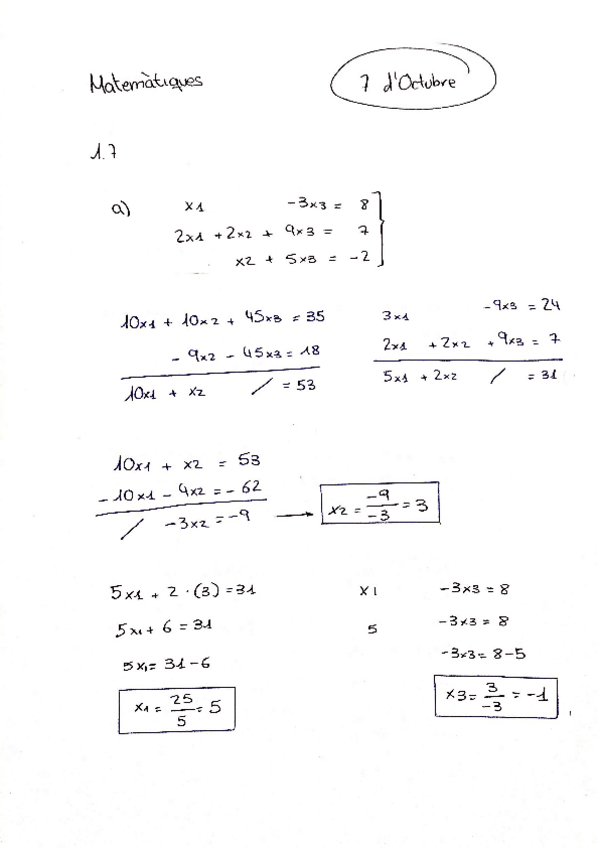 Matemàtiques
7 d'Octubre
1.7
a) x1 -3x3 = 8
2x1 + 2x2 + 9x3 = 7
x2 + 5x3 = -2
10x1 + 10x2 + 45x3 = 35
- 9x2 - 45x3 = 18
10x1 + x2 / = 53
3x1 -9x3 = 24
2x1 + 2x2 + 9x3 = 7
5x1 + 2x2 / = 31
10x1 + x2 = 53
-10x1 - 4x2 = -62
/ -3x2 = -9 → x2 = -9/-3 = 3
5x1 + 2 · (3) = 31
5x1 + 6 = 31
5x1 = 31 - 6
x1 = 25/5 = 5
x1 -3x3 = 8
5 -3x3 = 8
-3x3 = 8 - 5
x3 = 3/-3 = -1